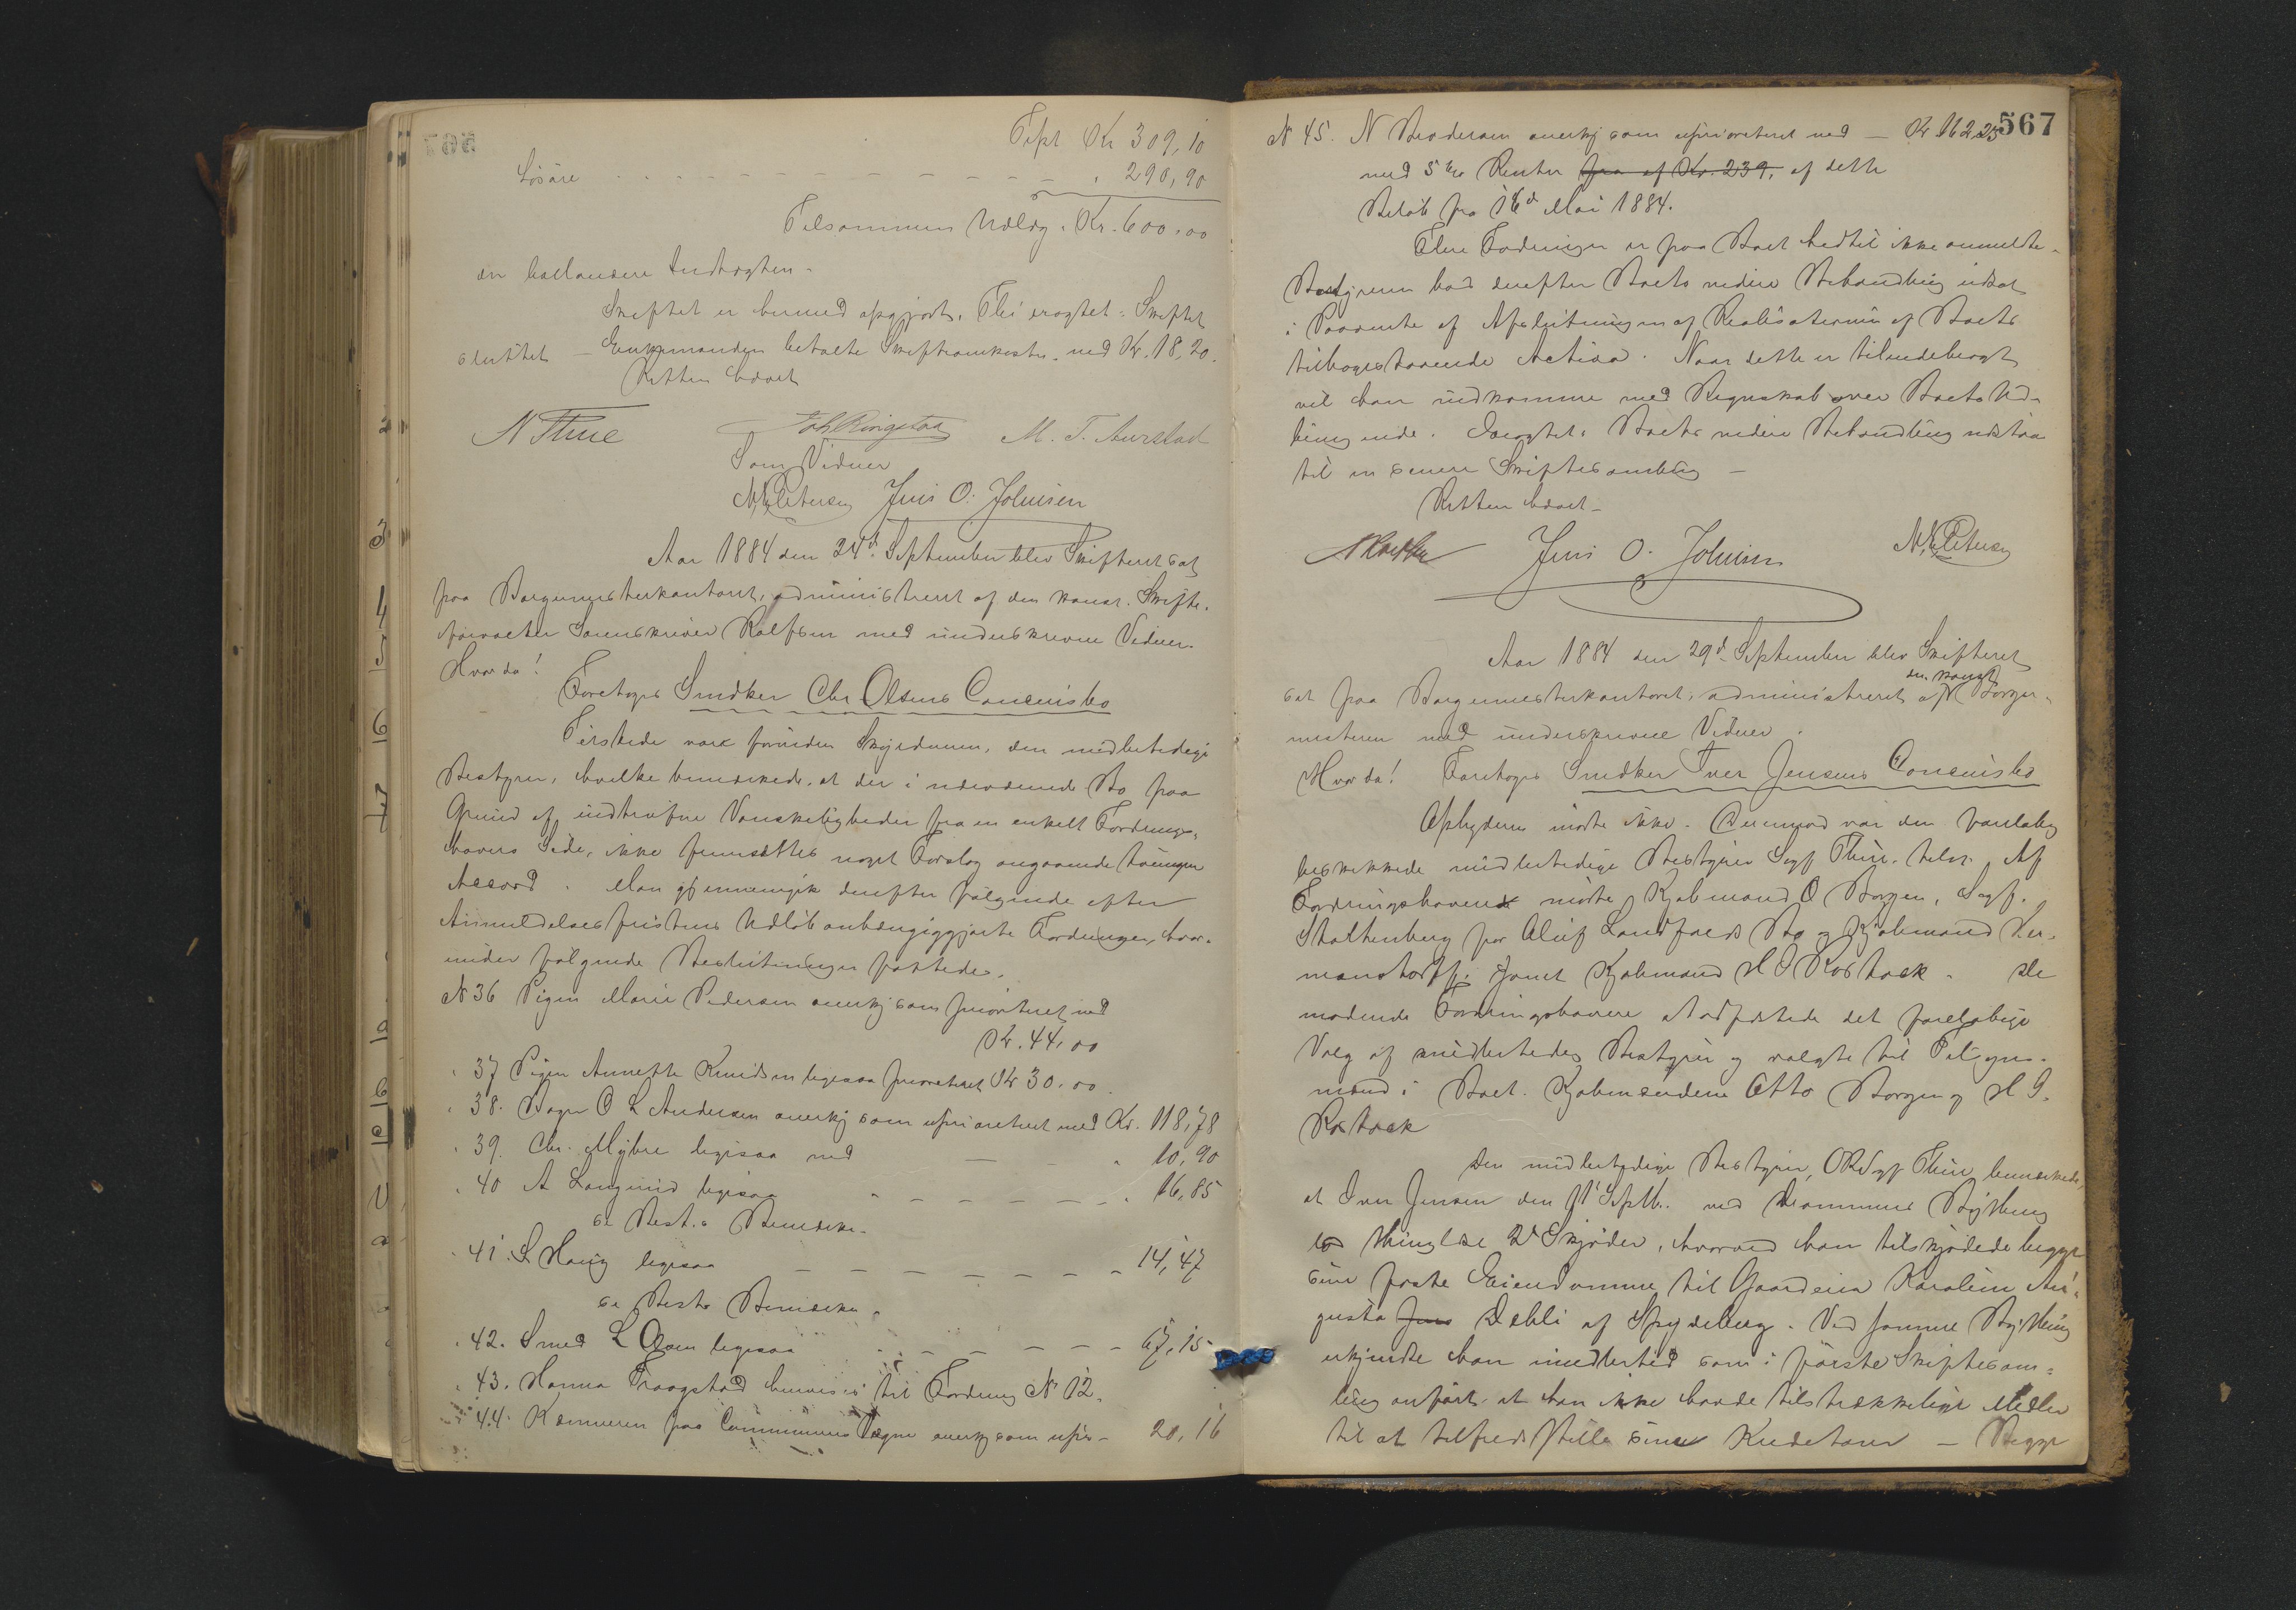 Tspt Kr 309,10
Lösöre - - - - - - " 290,90
Tilsammen Udlæg. Kr. 600,00
den ballancere Indtægten.
Skiftet er hermed opgjort. Thi eragtet: Skiftet
sluttet - Enkemanden betalte Skifteomkostn. med Kr. 18,20.
Retten hævet
N Thue Joh Ringstad M. T. Aurstad
Som Vidner
N. E. Petersen Jens O. Johnsen
Aar 1884 den 24d September blev Skifteret sat
paa Borgermesterkontoret, administreret af den konst. Skifte-
forvalter Sorenskriver Rolfsen med underskrevne Vidner.
Hvorda!
Foretoges Snedker Chr Olsens Concursbo
Tilstede vare foruden Skyldneren, den midlertidige
Bestyrer, hvilke bemærkede, at der i nærværende Bo paa
Grund af indtrufne Vanskeligheder fra en enkelt Fordrings-
havers Side, ikke fremsættes noget Forslag angaaende tvungen
Accord. Man gjennemgik derefter følgende efter
Anmeldelsesfristens Udløb anhængiggjorte Fordringer, hvor-
under følgende Beslutninger fattedes.
N 36 Pigen Marie Pedersen anerkj som prioriteret med
Kr. 44,00
" 37 Pigen Annette Knudsen ligesaa prioriteret Kr 30,00.
" 38. Bager O L Andersen anerkj som uprioriteret med Kr. 118,78
" 39. Chr. Myhre ligesaa med - - " 10,90
" 40 A Langmid ligesaa - - - - - " 16,85
se Best.s Bemærkn.
" 41. L Haug ligesaa - - - - - - 14,47
se Best.s Bemærkn.
" 42. Smed L Olsen ligesaa - - - - 67,15
" 43. Hanna Fraagstad henvises til Fordring N 12.
" 44. Kæmneren paa Communens Vegne anerkj som upri - 20,16
567
N 45. N Brodersen anerkj som uprioriteret med - Kr 162,25
med 5 % Renter fra af Kr. 239, af dette
Beløb fra 16d Mai 1884.
Flere Fordringer er paa Boet hertil ikke anmeldte.
Bestyreren bad derefter Boets videre Behandling udsat
i Paavente af Afslutningen af Realisationen af Boets
tilbagestaaende Activa. Naar dette er tilendebragt
vil han indkomme med Regnskab over Boets Ud-
. Eragtet: Boets videre Behandling udstaar
til en senere Skiftesamling -
Retten hævet -
Jens O. Johnsen N. E. Petersen
Aar 1884 den 29d September blev Skifteret
sat paa Borgermesterkontoret, administreret af den konst. Borger-
mesteren med underskrevne Vidner.
Hvorda! Foretoges Snedker Iver Jensens Concursbo
Opbyderen mødte ikke. Derimod var den foreløbig
beskikkede midlertidige Bestyrer Sagf Thue tilst. Af
Fordringshaverne mødte Kjøbmand O Borgen, Sagf.
Stoltenberg for Bo og Kjøbmand Her-
manstorff, samt Kjøbmand H I Rostock. De
mødende Fordringshavere stadfæstede det foreløbige
Valg af midlertidig Bestyrer og valgte til Tilsyns-
mænd i Boet. Kjøbmændene Otto Borgen og H I.
Rostock
Den midlertidige Bestyrer, ORSagf Thue bemærkede,
at Iver Jensen den 11' Septb. ved Drammens Bything
lod thinglæse 2d Skjøder, hvorved han tilskjødede begge
sine faste Eiendomme til Gaardeier Karoline Au-
gusta Jens Dehli af Spydeberg. Ved samme Bything
erkjendte han imidlertid som i første Skiftesam-
ling anført, at han ikke havde tilstrækkelige Midler
til at tilfredsstille sine Kreditorer - Begge